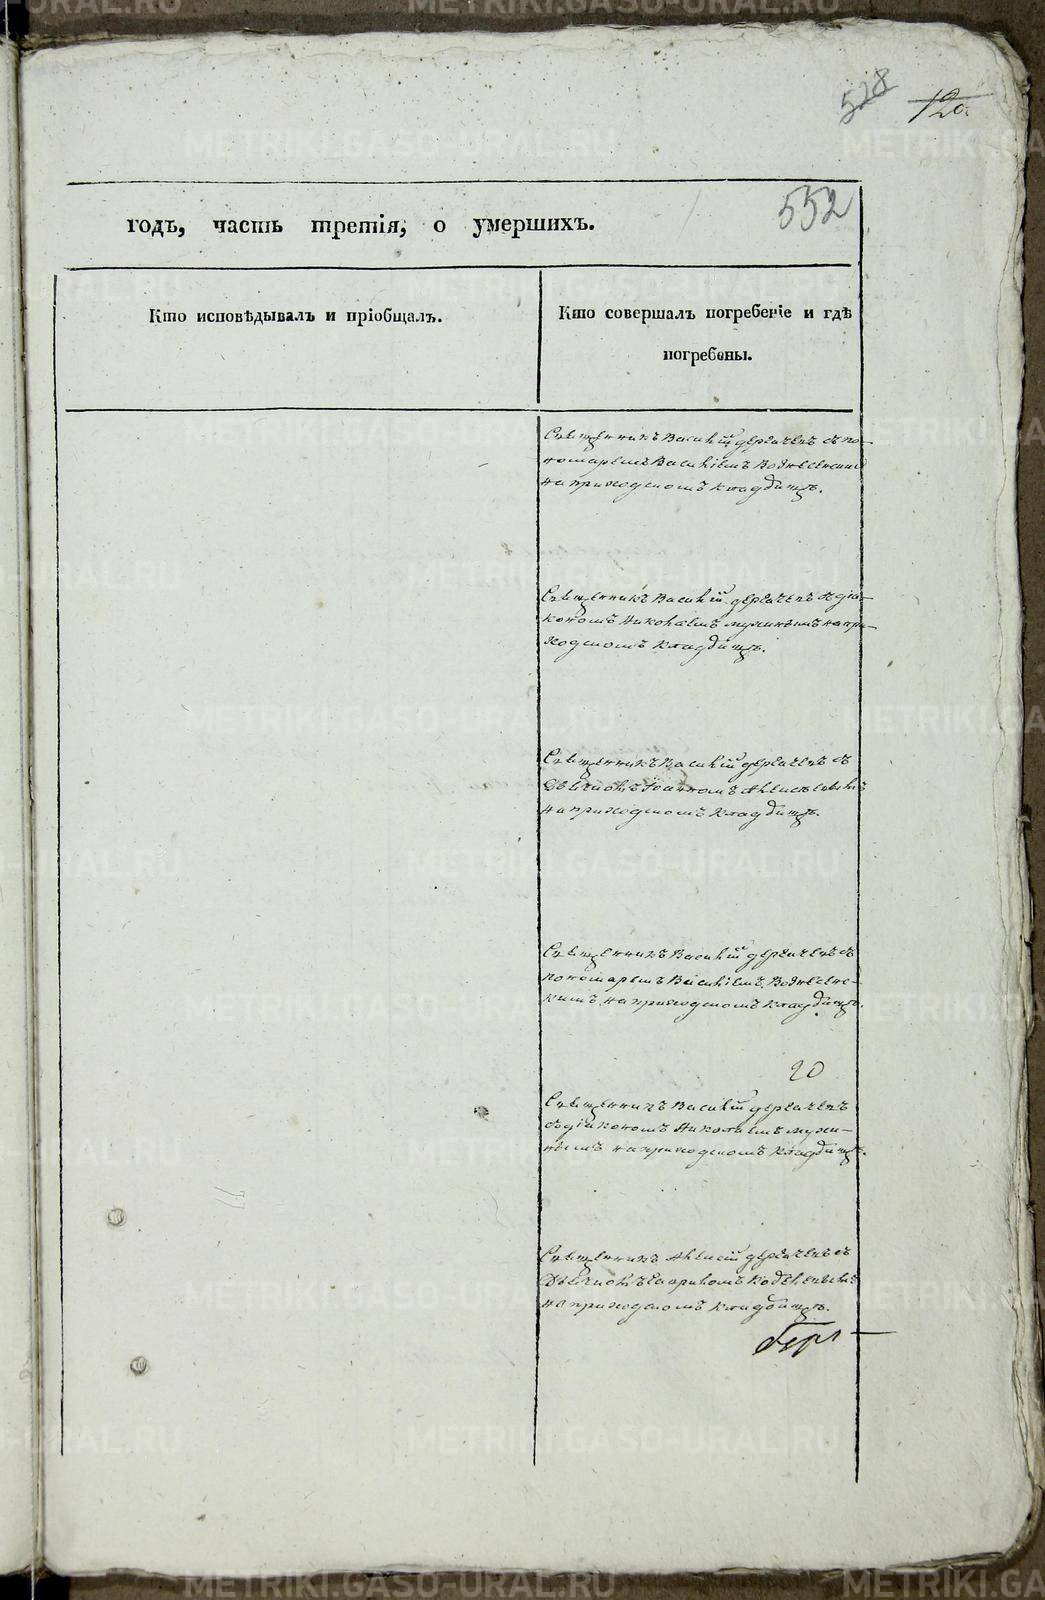 528
120.
552
годъ, часть третія, о умершихъ.
Кто исповѣдывалъ и пріобщалъ.
Кто совершалъ погребеніе и гдѣ
погребены.
Священникъ Василій Дерячевъ съ по-
номаремъ Василіемъ Вознесенскимъ
на приходскомъ кладбищѣ.
Священникъ Василій Дерячевъ съ діа-
кономъ Николаемъ на при-
ходскомъ кладбищѣ.
Священникъ Василій Дерячевъ съ
Іоанномъ
на приходскомъ кладбищѣ.
Священникъ Василій Дерячевъ съ
пономаремъ Василіемъ Вознесенс-
кимъ на приходскомъ кладбищѣ.
20
Священникъ Василій Дерячевъ
съ діакономъ Николаемъ
на приходскомъ кладбищѣ.
Священникъ Алексій Дерячевъ съ
на приходскомъ кладбищѣ.
METRIKI.GASO-URAL.RU